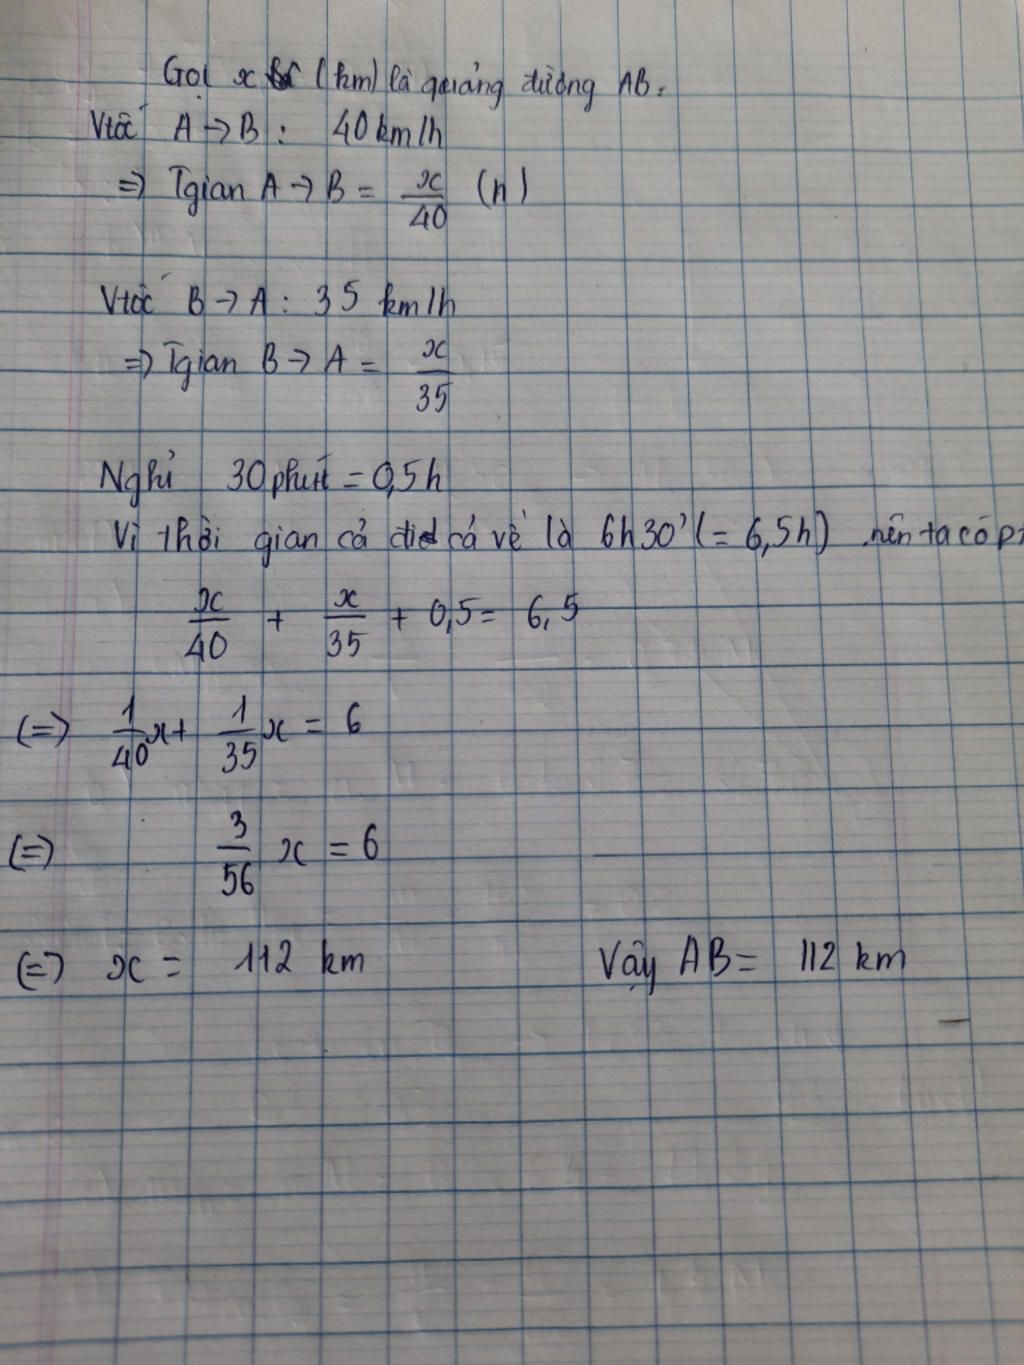 Gọi x (km) là quảng đường AB.
Vtốc A → B : 40 km/h
=> Tgian A → B = x/40 (h)
Vtốc B → A : 35 km/h
=> Tgian B → A = x/35
Nghỉ 30 phút = 0,5h
Vì thời gian cả đi cả về là 6h30' (= 6,5h) nên ta có
x/40 + x/35 + 0,5 = 6,5
(=) 1/40 x + 1/35 x = 6
(=) 3/56 x = 6
(=) x = 112 km Vậy AB = 112 km